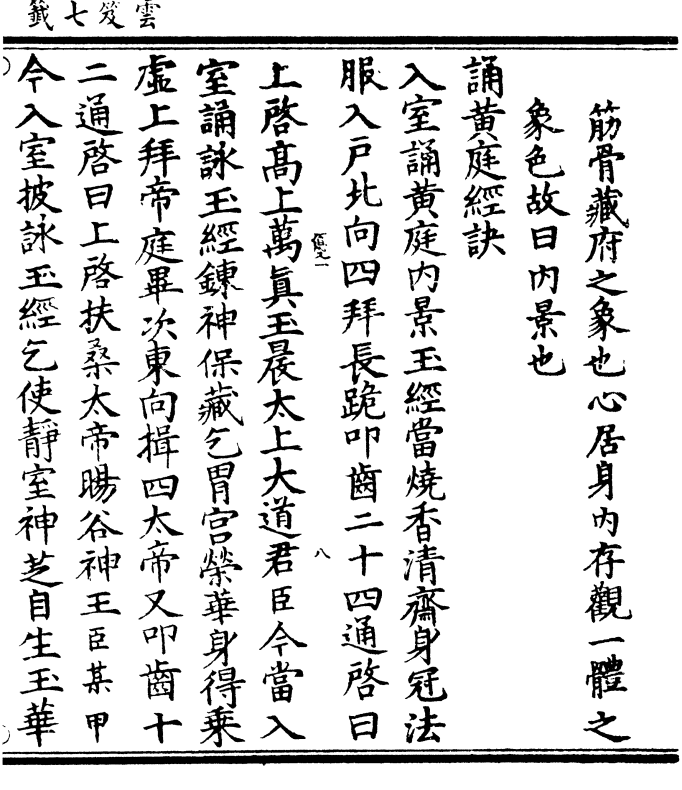 雲笈七籤
筋骨藏府之象也心居身內存觀一體之
象色故曰內景也
誦黃庭經訣
入室誦黃庭內景玉經當燒香清齋身冠法
服入戶北向四拜長跪叩齒二十四通啓曰
上啓高上萬眞玉晨太上大道君臣今當入
室誦詠玉經鍊神保藏乞胃宮榮華身得乘
虛上拜帝庭畢次東向揖四太帝又叩齒十
二通啓曰上啓扶桑太帝暘谷神王臣某甲
今入室披詠玉經乞使靜室神芝自生玉華
八